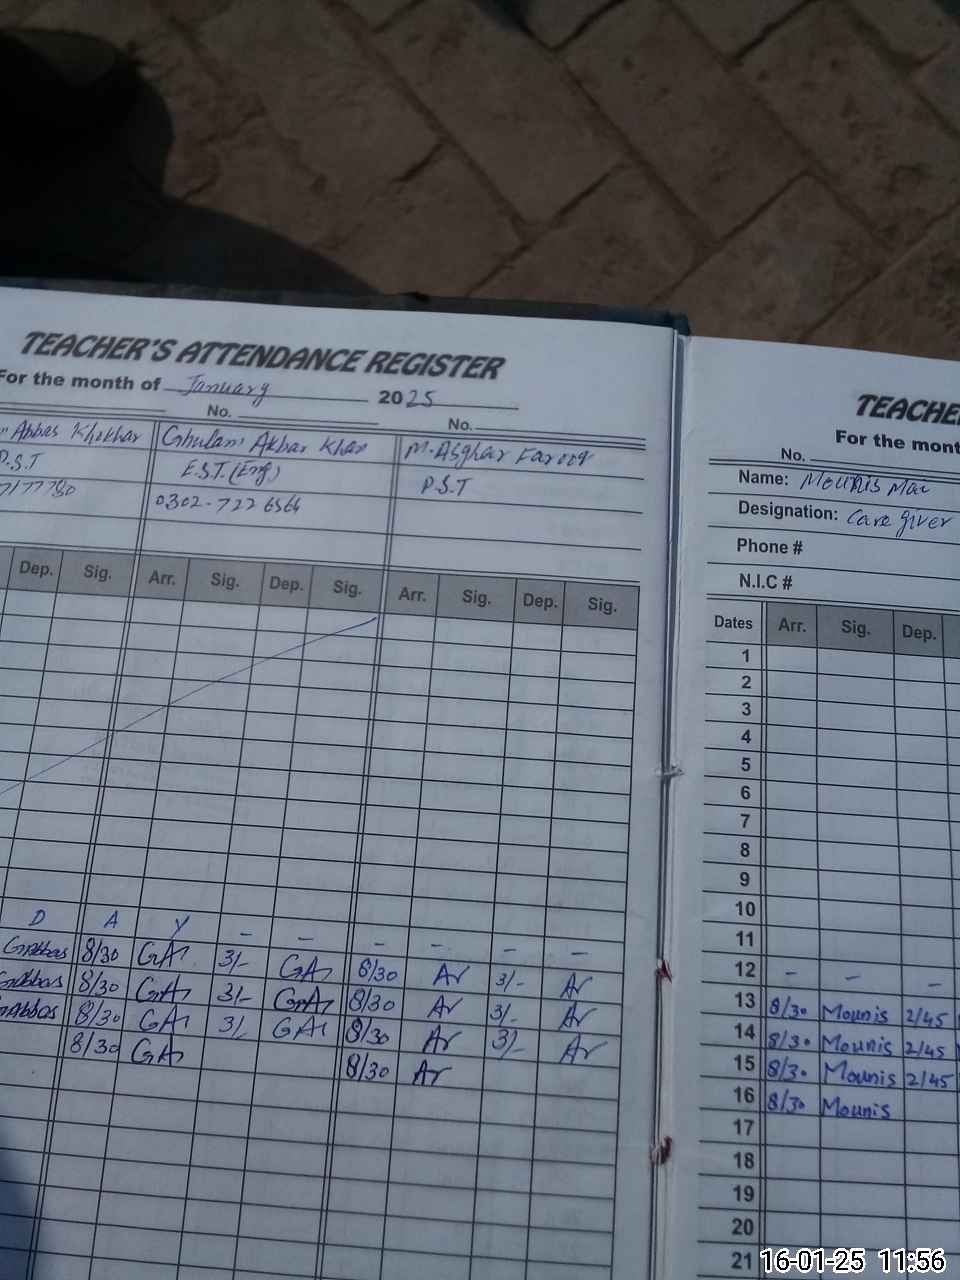 TEACHER'S ATTENDANCE REGISTER
For the month of January 2025
No. No.
Abbas Khokhar Ghulam Akbar Khan M. Asghar Farooq
P.S.T E.S.T.(Eng) P.S.T
7177780 0302-722 6564
Dep. Sig. Arr. Sig. Dep. Sig. Arr. Sig. Dep. Sig.
D A Y - - - - - -
GAbbas 8/30 GAr 3/- GAr 8/30 Ar 3/- Ar
GAbbas 8/30 GAr 3/- GAr 8/30 Ar 3/- Ar
GAbbas 8/30 GAr 3/- GAr 8/30 Ar 3/- Ar
8/30 GAr 8/30 Ar
TEACHE
For the mont
No.
Name: Mounis
Designation: Care giver
Phone #
N.I.C #
Dates Arr. Sig. Dep.
1
2
3
4
5
6
7
8
9
10
11
12 - - -
13 8/30 Mounis 2/45
14 8/30 Mounis 2/45
15 8/30 Mounis 2/45
16 8/30 Mounis
17
18
19
20
21
16-01-25 11:56